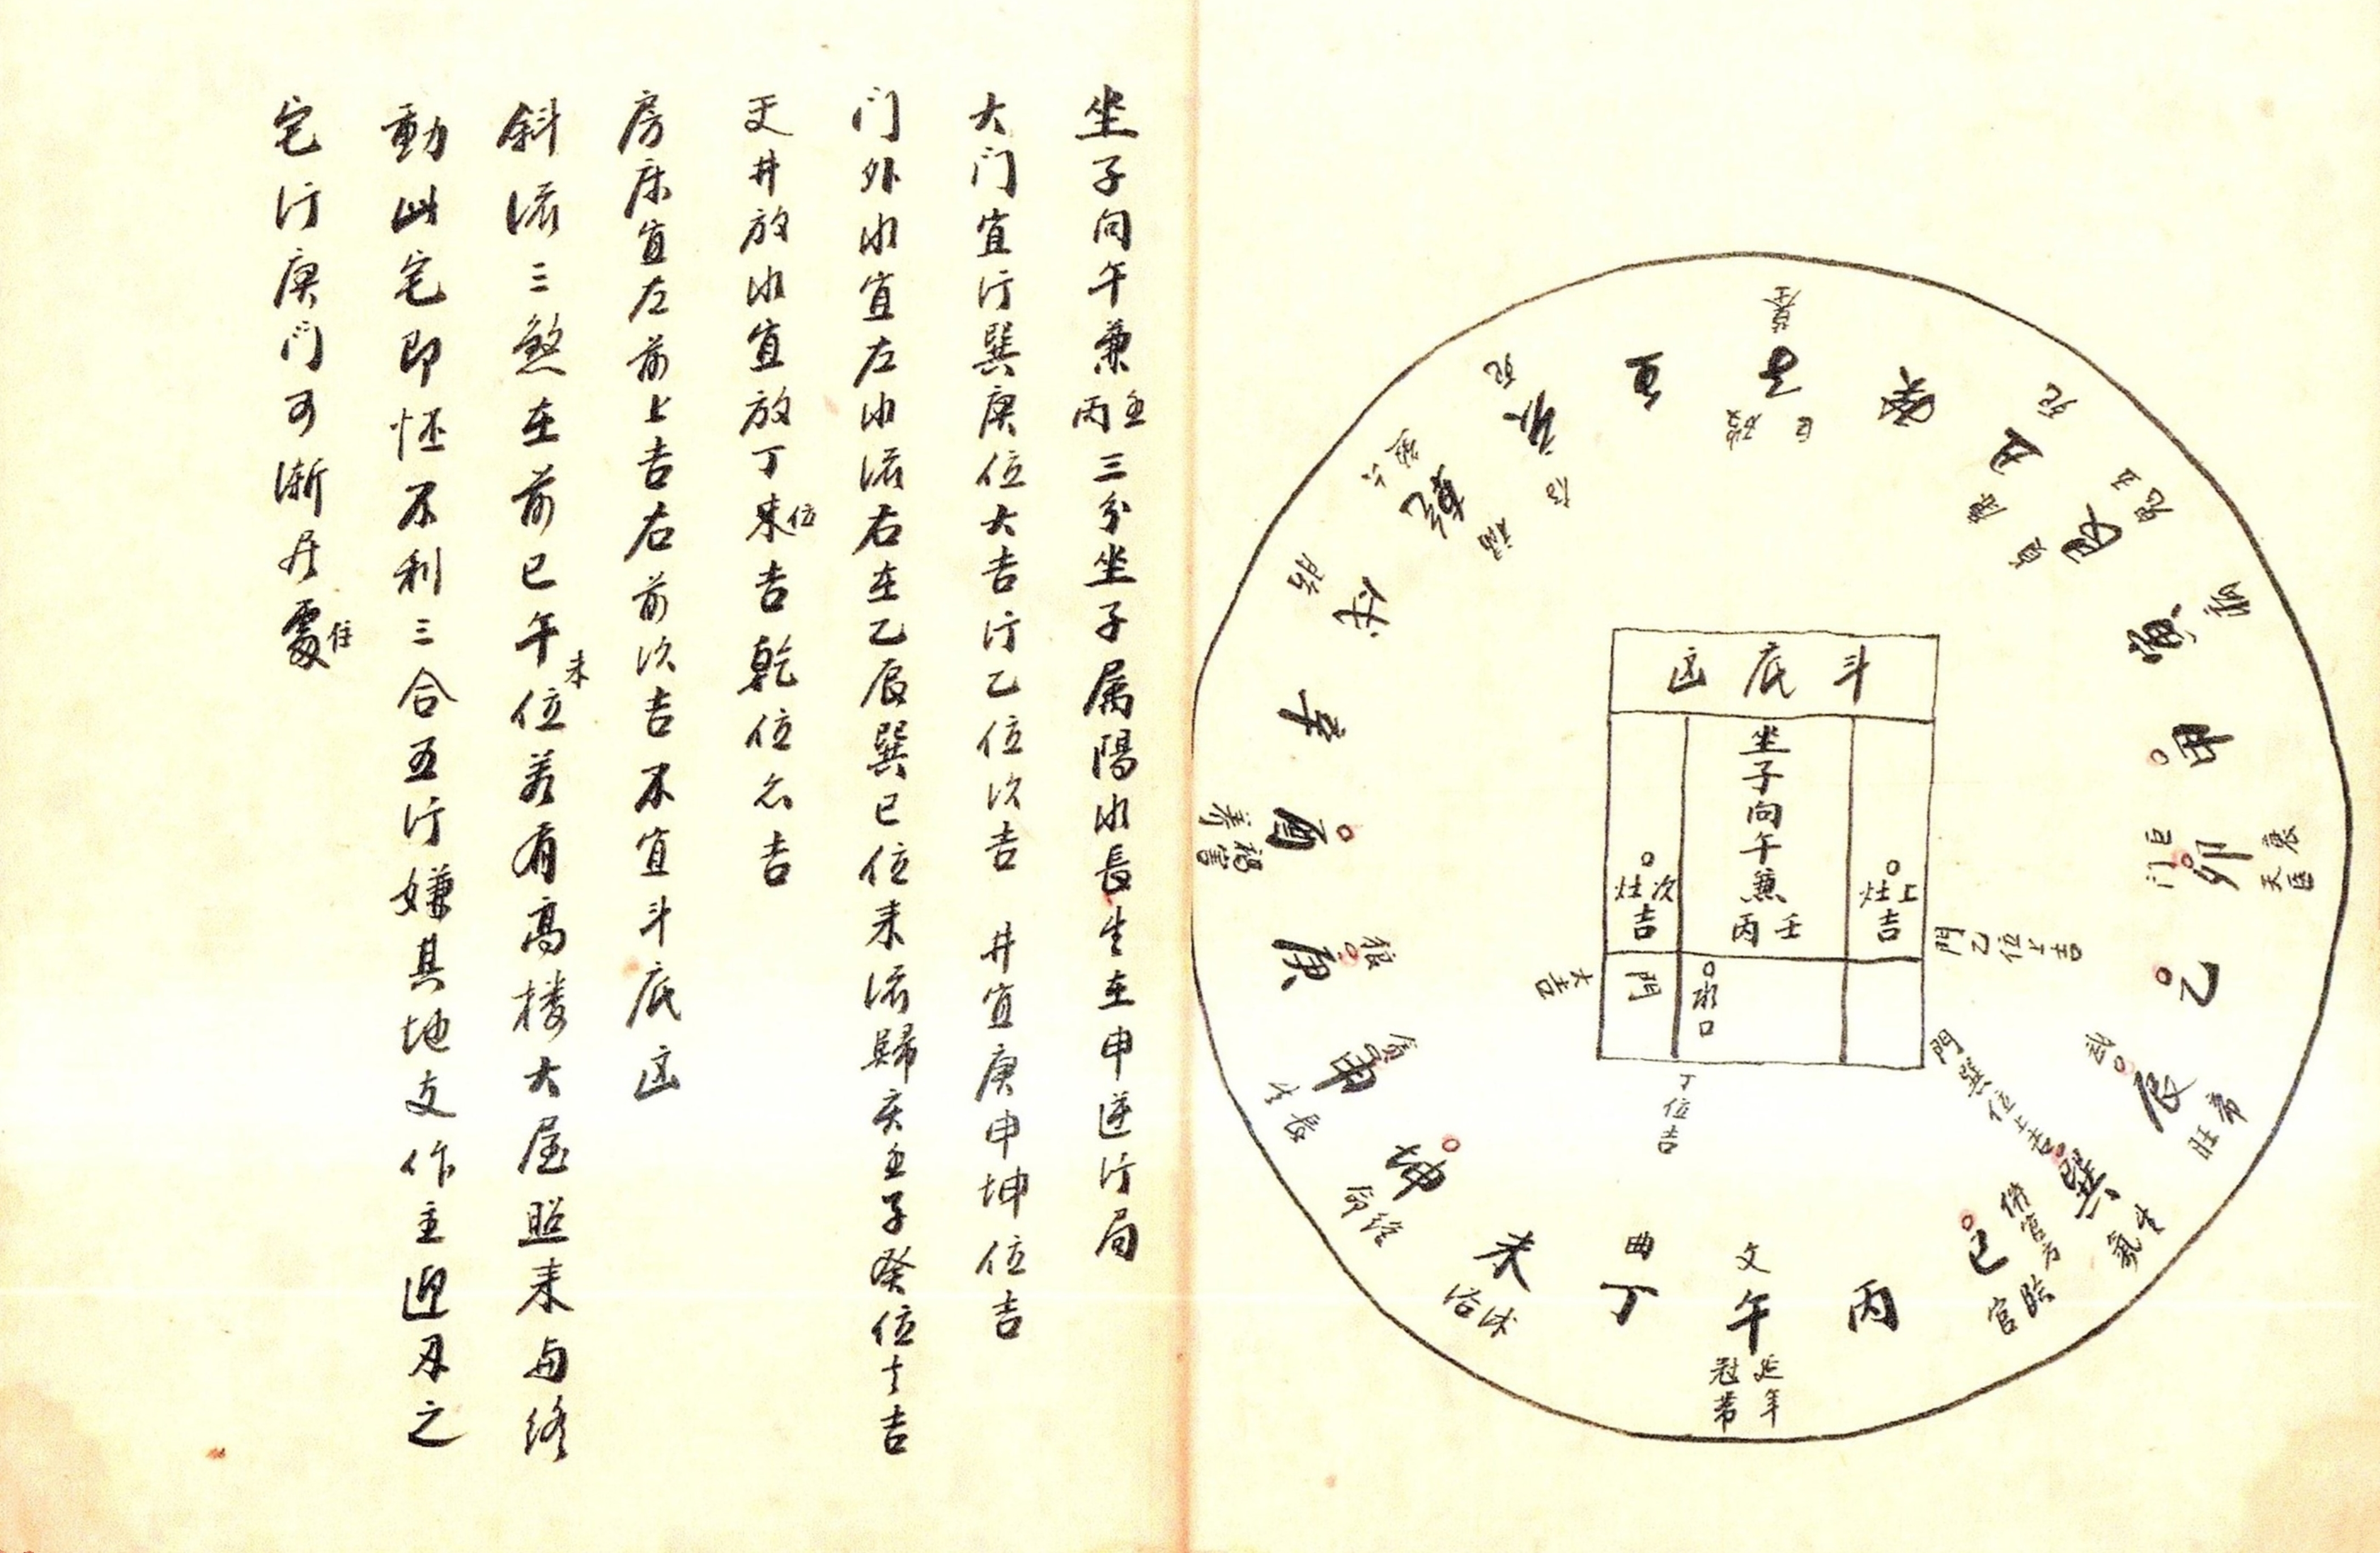 坐子向午兼壬丙三分坐子属陽水長生在申逆行局
大门宜行巽庚位大吉行乙位次吉 井宜庚申坤位吉
门外水宜左水流右在乙辰巽巳位来流歸亥壬子癸位大吉
天井放水宜放丁未位吉乾位亦吉
房床宜左前上吉右前次吉不宜斗底凶
斜流三煞在前巳午未位若有高楼大屋照来与修
動此宅即怪不利三合五行嫌其地支作主迎刃之
宅行庚门可漸居處住
墓
子
癸
丑
艮
寅
甲
卯
巨门
衰
天医
乙
辰
武
帝旺
巽
生氣
巳
臨官
丙
文
午
延年
冠帶
曲
丁
未
沐浴
坤
申
庚
酉
養
辛
戌
胎
乾
亥
壬
斗底凶
坐子向午兼壬丙
灶上吉
灶次吉
門
水口
大吉
丁位吉
門乙位上吉
門巽位上吉